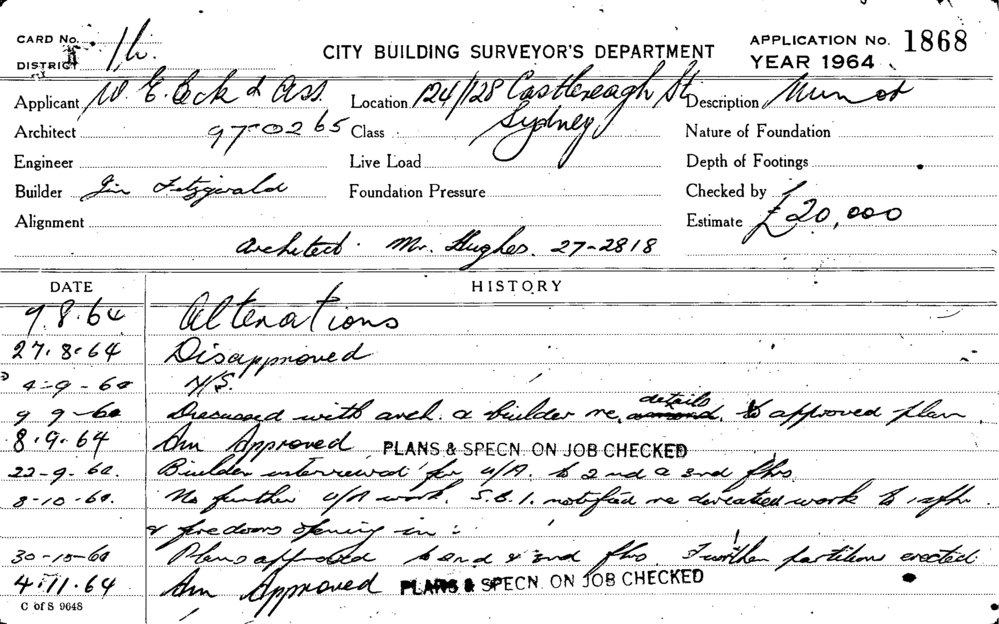 CARD No. 1h.
DISTRICT
CITY BUILDING SURVEYOR'S DEPARTMENT
APPLICATION No. 1868
YEAR 1964
Applicant W. E. Eck & Ass. Location 124/128 Castlereagh St Description Munot
Sydney
Architect 97-0265 Class Nature of Foundation
Engineer Live Load Depth of Footings
Builder Jim Fitzgerald Foundation Pressure Checked by
Alignment Estimate £20,000
Architect. Mr. Hughes. 27-2818
DATE HISTORY
9.8.64 Alterations
27.8.64 Disapproved
4-9-64 N/S.
9 9-64 Discussed with arch. & builder re. details to approved plan
8.9.64 Am Approved PLANS & SPECN. ON JOB CHECKED
22-9-64. Builder interviewed for u/A. to 2nd & 3rd flrs.
8-10-64. No further u/A work. S.B.I. notified re deviated work to
& firedoors opening in:
30-10-64 Plans approved to 2nd & 3rd flrs Further partition erected
4.11.64 Am Approved PLANS & SPECN. ON JOB CHECKED
C of S 9648